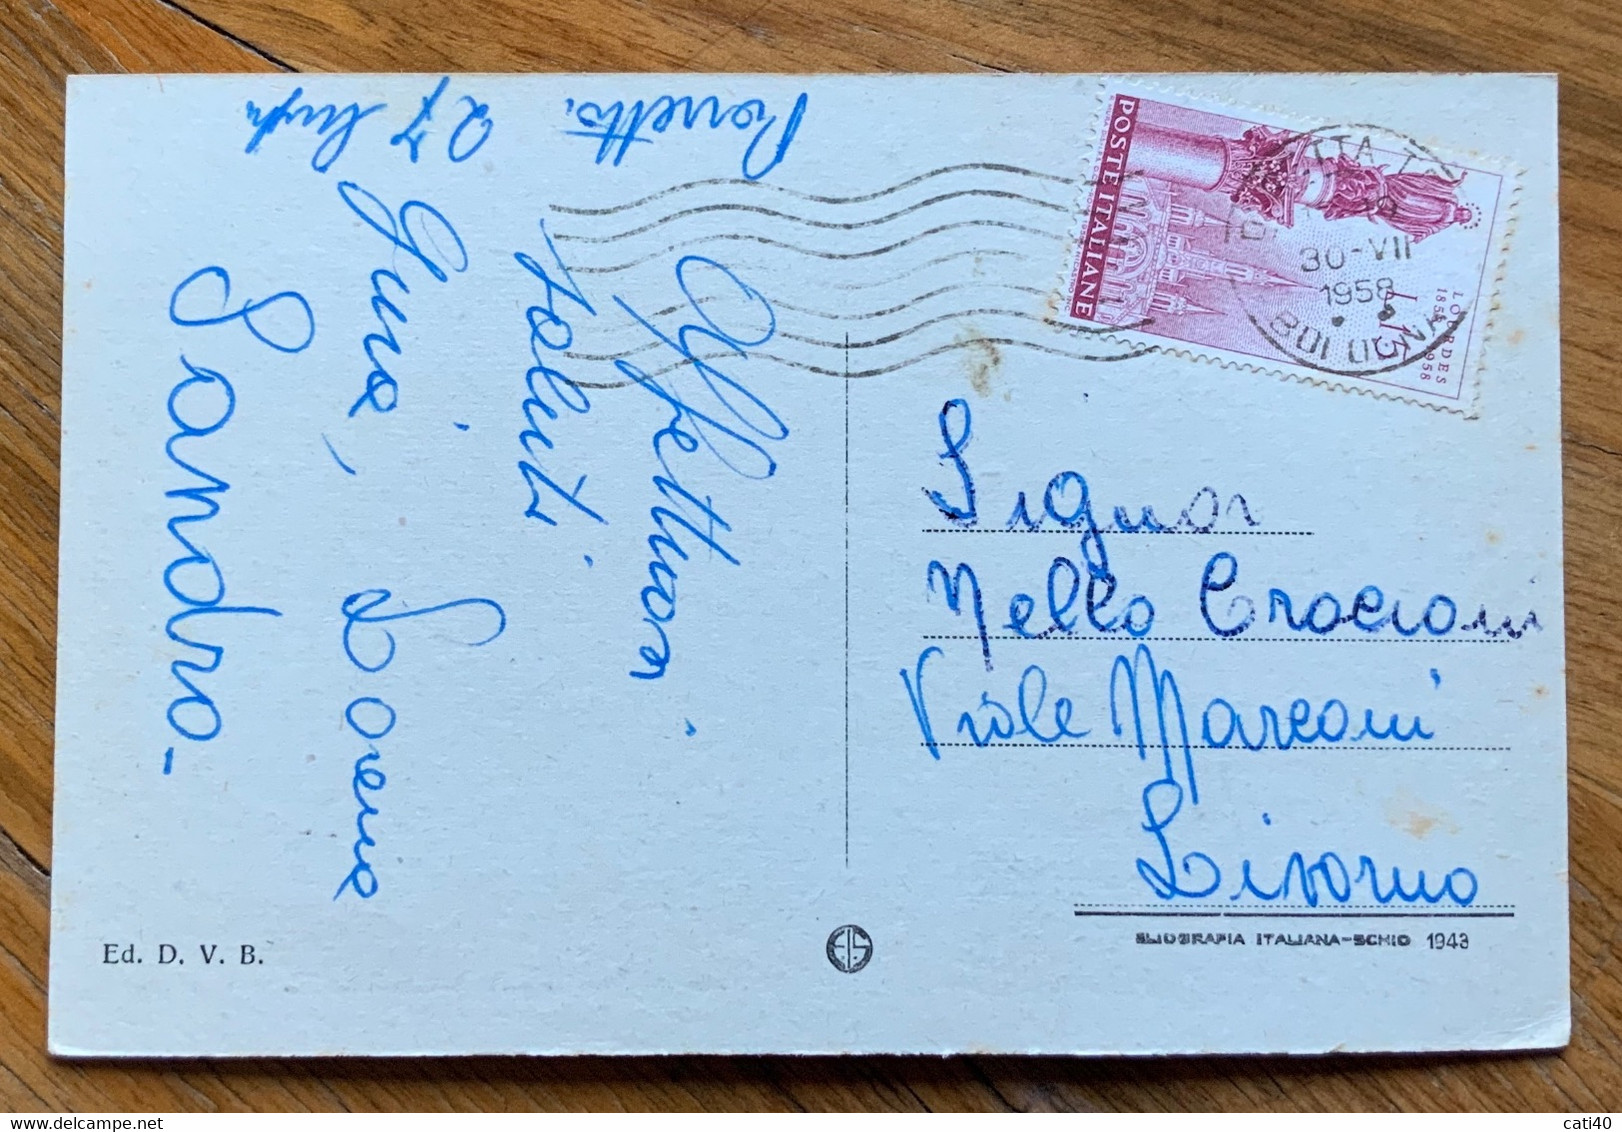 Porretta
27 luglio
Affettuosi
saluti
Gino, Lorena
Sandro
POSTE ITALIANE
LOURDES
1858 1958
L. 15
30-VII
1958
Signor
Nello Crocioni
Viale Marconi
Livorno
Ed. D. V. B.
ELIOGRAFIA ITALIANA-SCHIO 1943
cati40